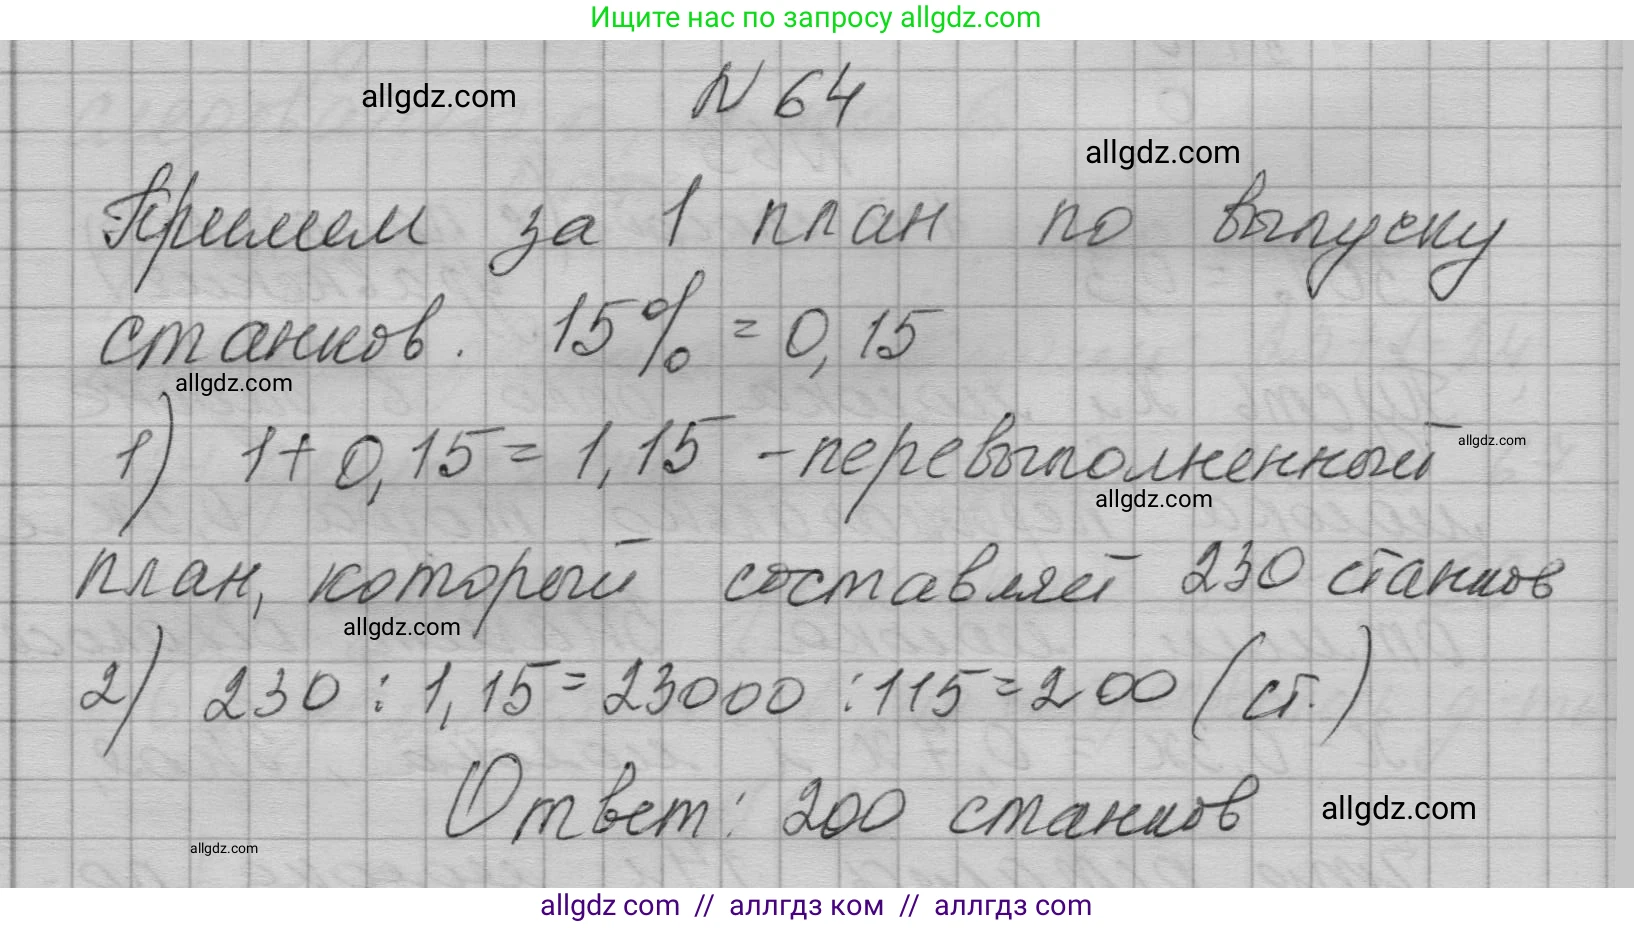 Ищите нас по запросу allgdz.com
allgdz.com
N 64
allgdz.com
Примем за 1 план по выпуску
станков. 15% = 0,15
allgdz.com
1) 1+0,15=1,15 -перевыполненный
allgdz.com
allgdz.com
план, который составляет 230 станков
allgdz.com
2) 230 : 1,15 = 23000 : 115 = 200 (ст.)
Ответ: 200 станков
allgdz.com
allgdz.com
allgdz com // аллгдз ком // аллгдз com